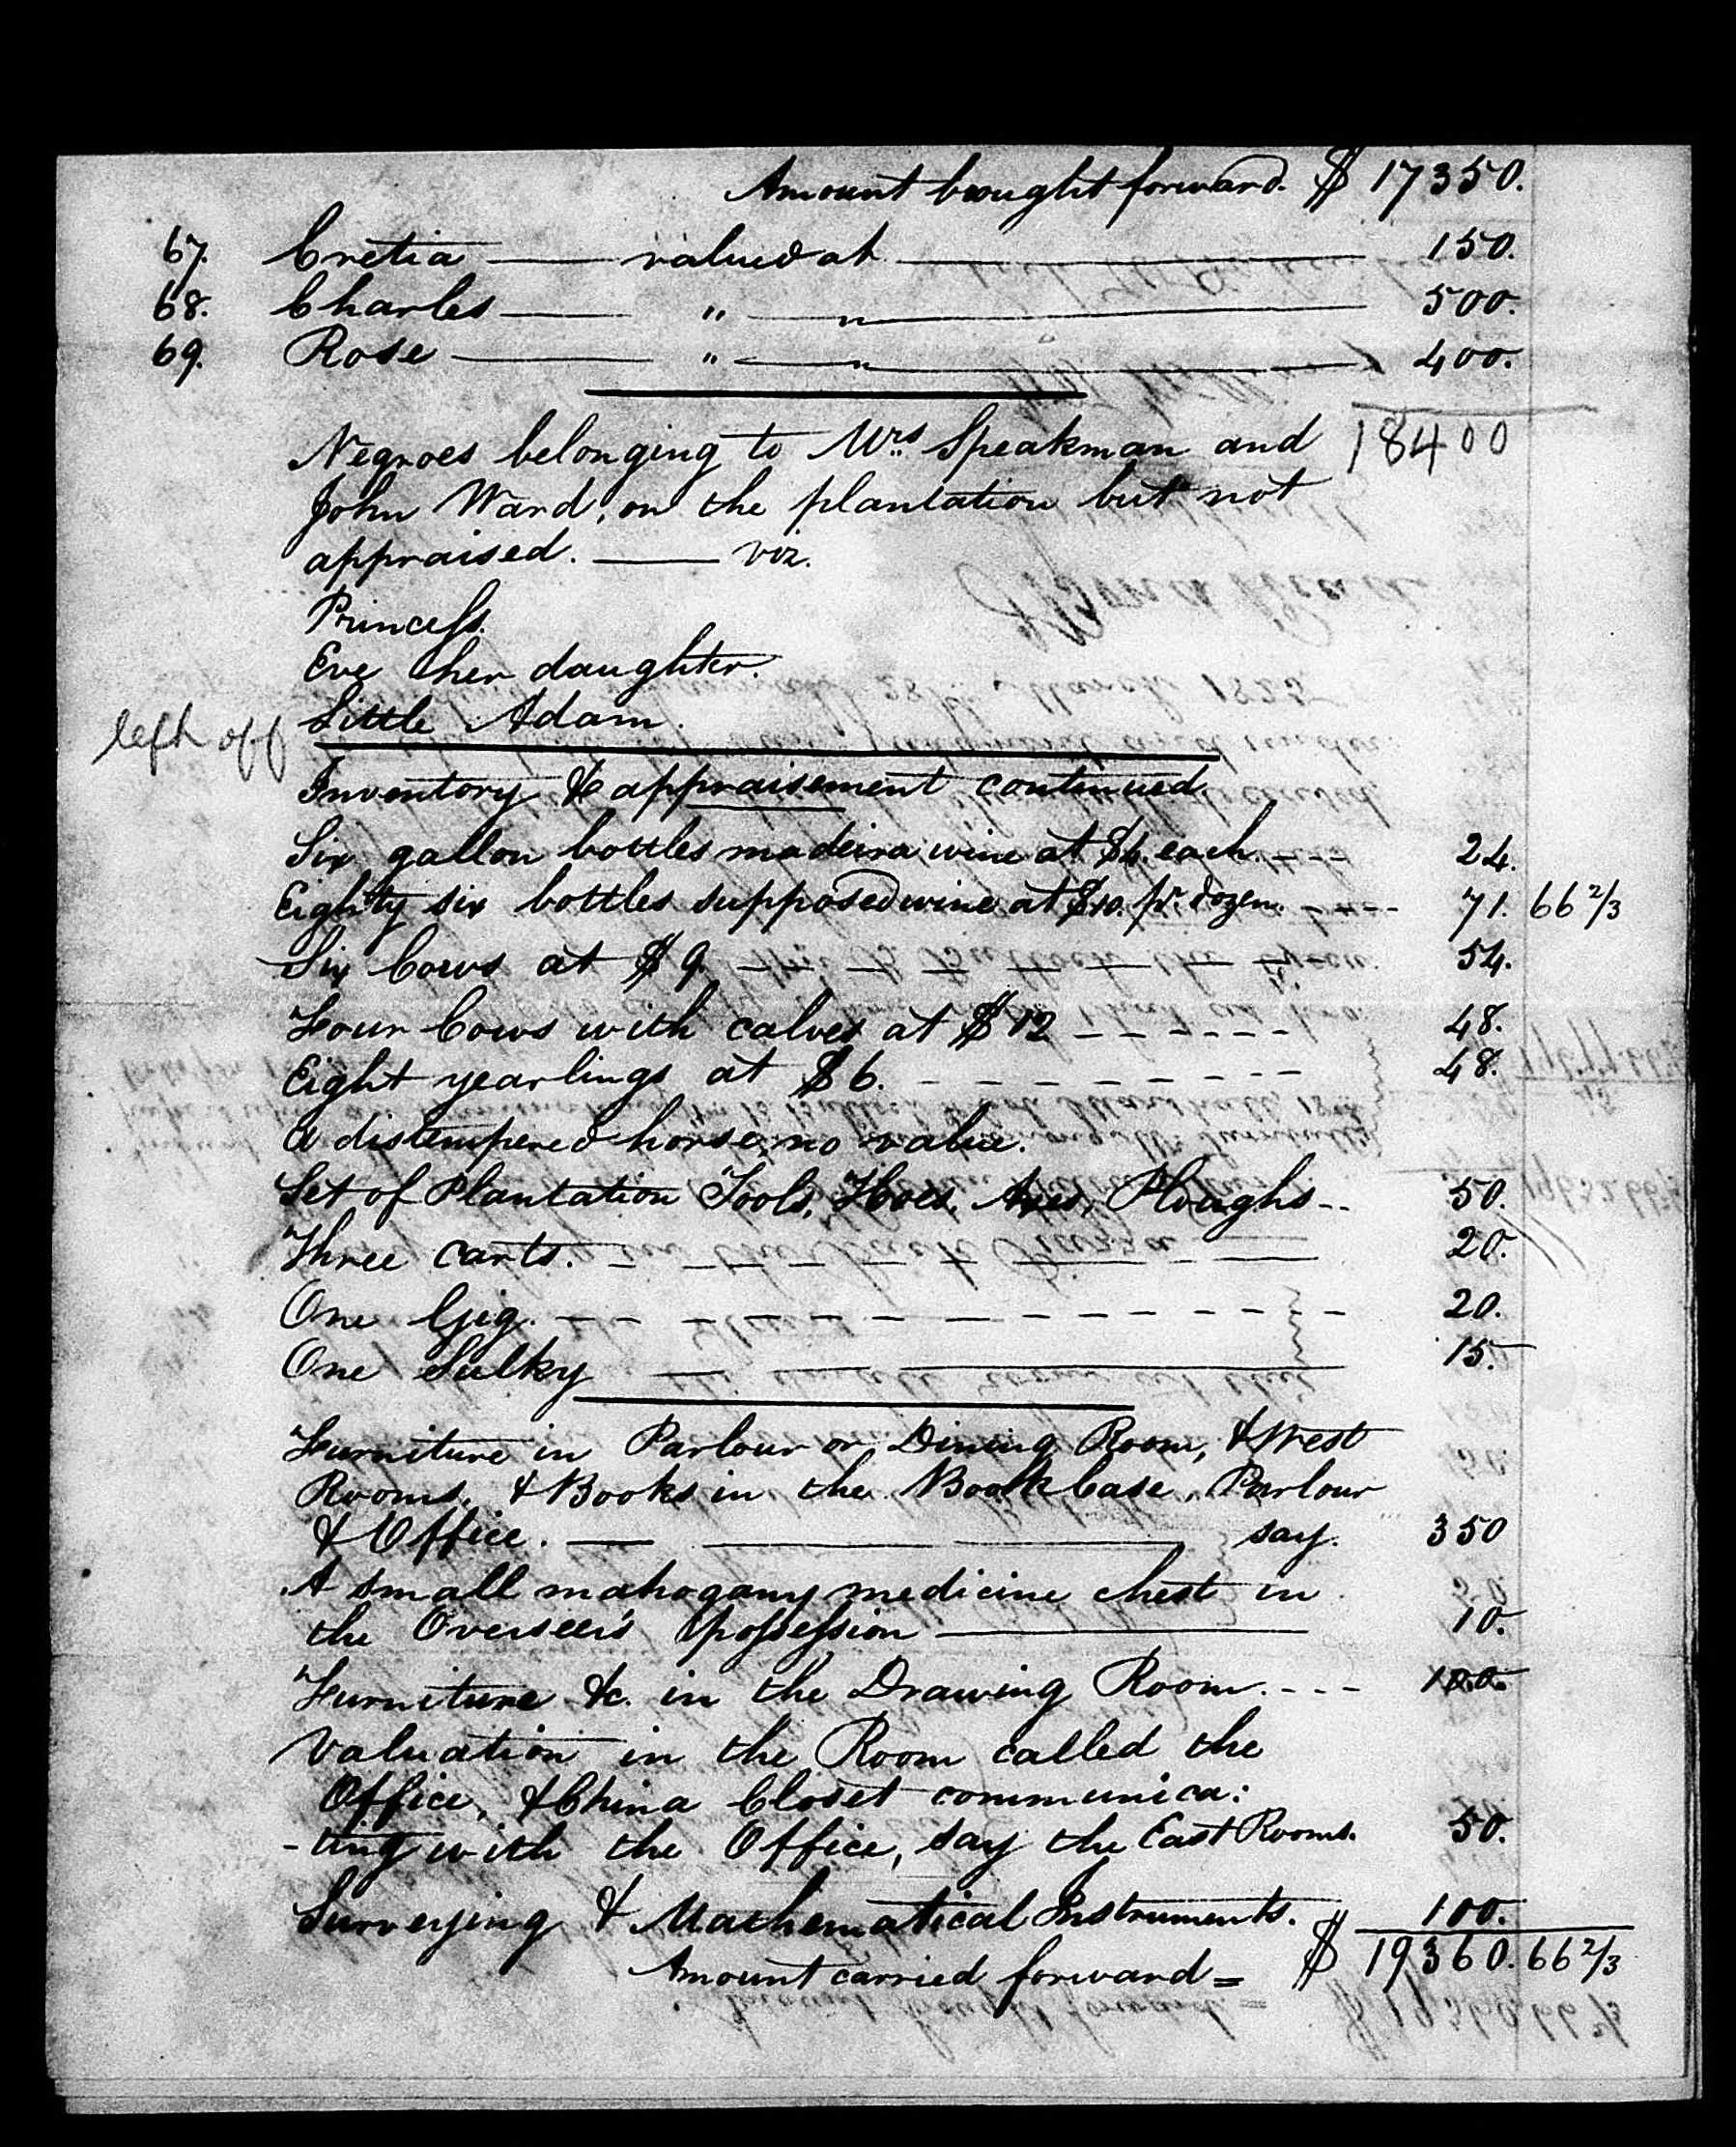 Amount brought forward. $ 17350.
67. Cretia — valued at — 150.
68. Charles — " — " — 500.
69. Rose — " — " — 400.
18400
Negroes belonging to Mrs Speakman and
John Ward, on the plantation but not
appraised. — viz.
Princess.
Eve her daughter.
Little Adam.
left off
Inventory & appraisement continued.
Six gallon bottles madeira wine at $4. each. --- 24.
Eighty six bottles supposed wine at $10. pr. dozen. ---- 71. 66 2/3
Six Cows at $9 - - - - - - 54.
Four Cows with calves at $12 - - - - - - 48.
Eight yearlings at $6. - - - - - - - - - 48.
A distempered horse, no value.
Set of Plantation Tools, Hoes, Axes, Ploughs -- 50.
Three carts. - - - - - - 20.
One Gig. - - - - - - - - - - - 20.
One Sulky — — — 15.
Furniture in Parlour or Dining Room, & West
Rooms, & Books in the Book Case, Parlour
& Office. — — — say. 350
A small mahogany medicine chest in
the Overseer's possession — 10.
Furniture &c. in the Drawing Room. --- 100.
Valuation in the Room called the
Office, & China Closet communica:
-ting with the Office, say the East Rooms. 50.
Surveying & Mathematical Instruments. 100.
Amount carried forward = $ 19360. 66 2/3